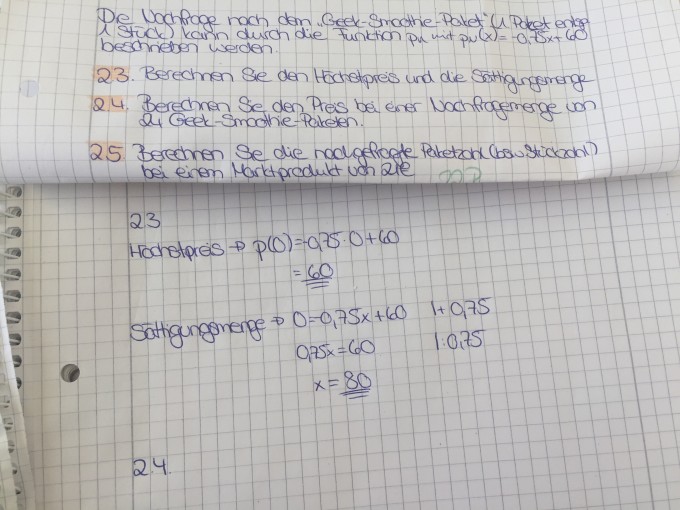 Die Nachfrage nach dem "Geek-Smoothie-Paket" (1 Paket entsp
1 Stück) kann durch die Funktion pN mit pN(x)=-0,75x+60
beschrieben werden.
2.3. Berechnen Sie den Höchstpreis und die Sättigungsmenge
2.4. Berechnen Sie den Preis bei einer Nachfragemenge von
24 Geek-Smoothie-Paketen.
2.5. Berechnen Sie die nachgefragte Paketzahl (bzw Stückzahl)
bei einem Marktprodukt von 21€
2.3
Höchstpreis → p(0)=-0,75·0+60
=60
Sättigungsmenge → 0=-0,75x+60 |+0,75
0,75x=60 |:0,75
x=80
2.4.